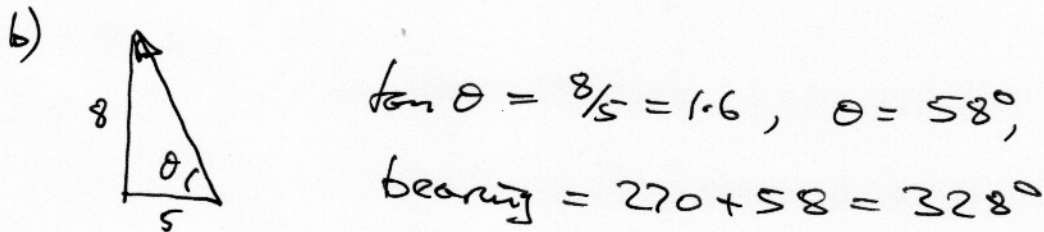 b)
8
θ
5
tan θ = 8/5 = 1.6, θ = 58°,
bearing = 270 + 58 = 328°